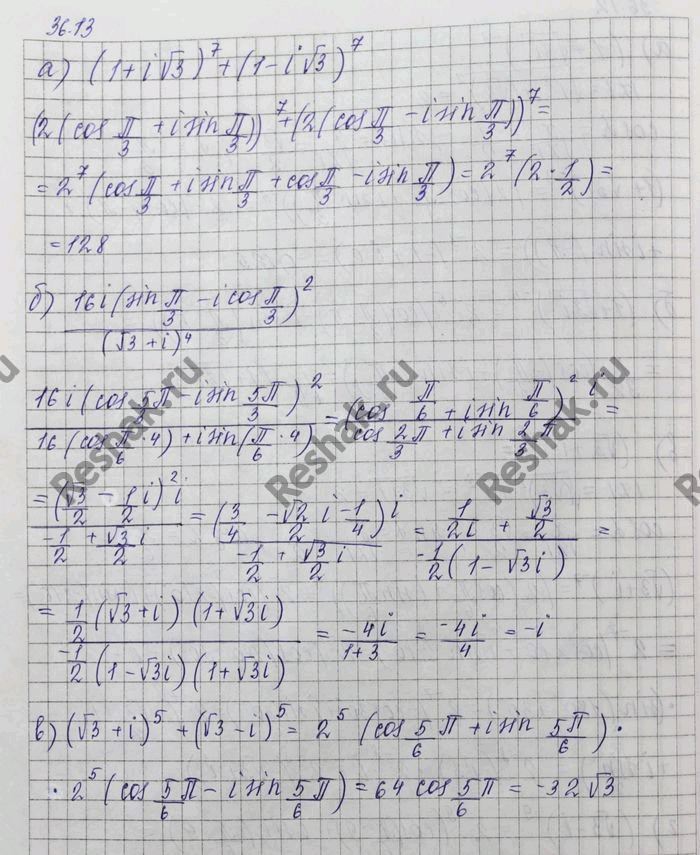 36.13
а) (1+i√3)⁷+(1-i√3)⁷
(2(cos π/3 + i sin π/3))⁷+(2(cos π/3 - i sin π/3))⁷=
=2⁷(cos π/3 + i sin π/3 + cos π/3 - i sin π/3)=2⁷(2·1/2)=
=128
б) 16i(sin π/3 - i cos π/3)²/(√3+i)⁴
16i(cos 5π/3 - i sin 5π/3)²/16(cos π/6·4)+i sin(π/6·4) = (cos π/6 + i sin π/6)² i/cos 2/3 π + i sin 2/3 π =
=(√3/2 - 1/2 i)² i/-1/2 + √3/2 i = (3/4 - √2/2 i - 1/4) i/-1/2 + √3/2 i = 1/2i + √3/2/-1/2(1-√3i) =
= 1/2(√3+i)(1+√3i)/-1/2(1-√3i)(1+√3i) = -4i/1+3 = -4i/4 = -i
в) (√3+i)⁵+(√3-i)⁵= 2⁵(cos 5/6 π + i sin 5π/6)·
·2⁵(cos 5/6 π - i sin 5π/6)=64 cos 5π/6 = -32√3
Reshak.ru
Reshak.ru
Reshak.ru